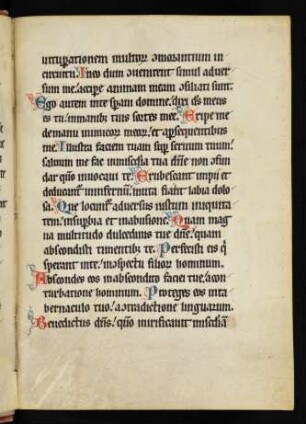 uituperationem multorū ɔmorantium in
circuitu. In eo dum ɔuenirent simul aduer
sum me: accipe animam meam ɔsiliati sunt.
Ego autem in te speraui domine: dixi ds meus
es tu: in manibus tuis sortes mee. Eripe me
de manu inimicorū meorū: et a persequentibus
me. Illustra faciem tuam sup seruum tuum:
saluum me fac in misericordia tua dn̄e non ɔfun
dar qm̄ inuocaui te. Erubescant impii et
deducant' in infernū: muta fiant labia dolo
sa. Que locunt' aduersus iustum iniquita
tem: in superbia et in abusione. Quam mag
na multitudo dulcedinis tue dn̄e: quam
abscondisti timentibus te. Perfecisti eis q̄
sperant in te: in ɔspectu filiorū hominum.
Abscondes eos in abscondito faciei tue: a con
turbatione hominum. Proteges eos in ta
bernaculo tuo: a ɔtradictione linguarum.
Benedictus dn̄s: qm̄ mirificauit mīam